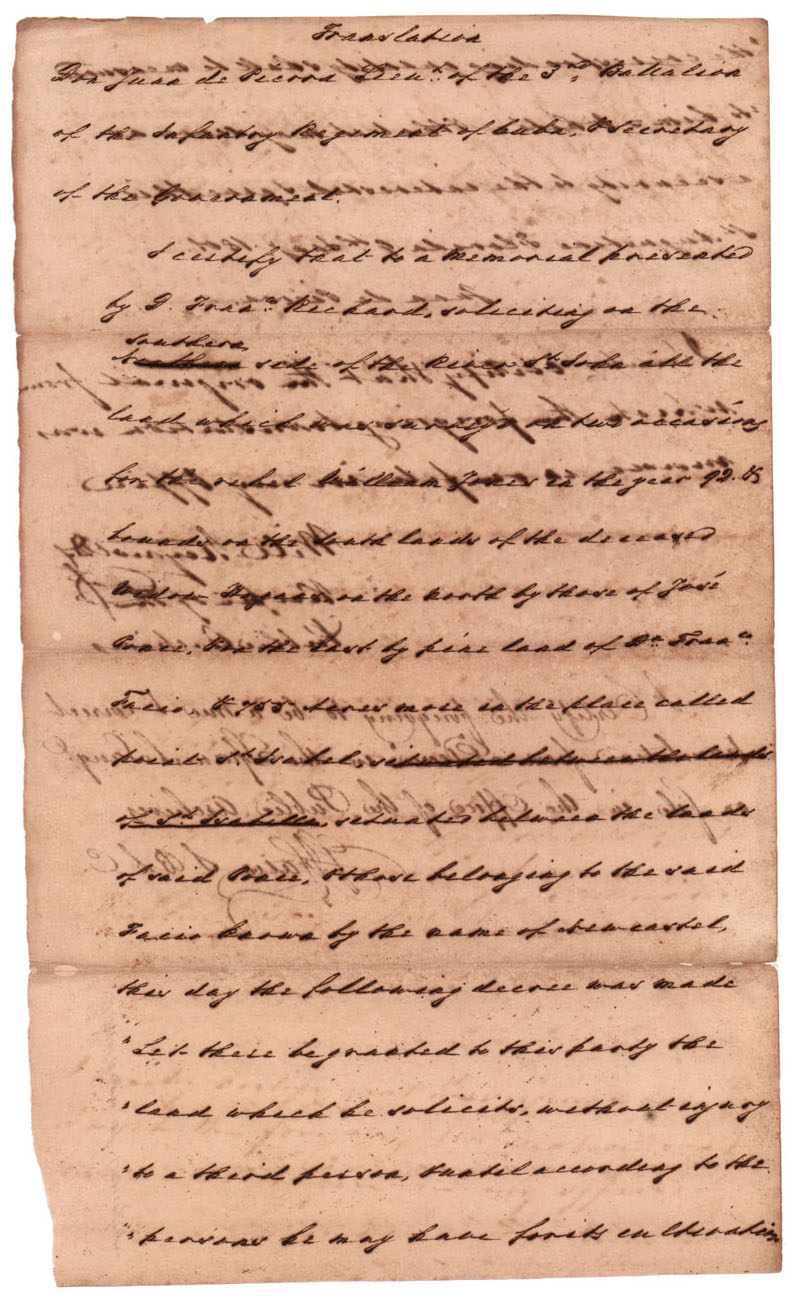 Translation
Don Juan de Pierra Lieu.t of the 3.d Battalion
of the Infantry Regiment of Cuba, & Secretary
of the Government.
I certify that to a memorial presented
by D. Fran.co Richard, soliciting on the
southern,
Northern side of the River St. John all the
land which was survey'd on two occasions
for the rebel William Jones in the year 92. &
bounds on the South lands of the deceased
Widow on the North by those of José
Ponce, & on the East by pine land of D.n Fran.co
Facio & 955 Acres more in the place called
point St. Isabel situated between the lands
of St. Isabella, situated between the lands
of said Ponce, & those belonging to the said
Facio known by the name of Newcastel,
this day the following decree was made
"Let there be granted to this party the
"land which he solicits, without injury
"to a third person, & until according to the
"persons he may have for its cultivation